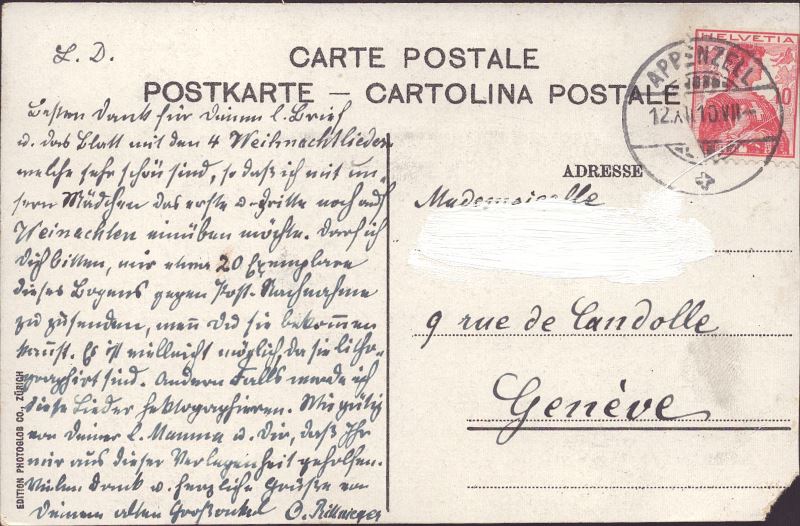 L. D.
CARTE POSTALE
POSTKARTE — CARTOLINA POSTALE
HELVETIA
APPENZELL
12.XII.10.VII
Besten Dank für Deinen l. Brief
u. das Blatt mit den 4 Weihnachtlieder
welche sehr schön sind, so daß ich mit un-
sern Mädchen das erste u. dritte noch auf
Weinachten einüben möchte. Darf ich
Dich bitten, mir etwa 20 Exemplare
dieses Bogens gegen Post-Nachnahme
zu zusenden, wenn Du sie bekommen
kannst. Es ist vielleicht möglich, da sie litho-
graphirt sind. Andern Falls werde ich
diese Lieder hektographieren. Wie gütig
von Deiner l. Mamma u. Dir, daß Ihr
mir aus dieser Verlegenheit geholfen.
Vielen Dank u. herzliche Grüße von
Deinem alten Großonkel
ADRESSE
Mademoiselle
9 rue de Candolle
Genève
EDITION PHOTOGLOB CO., ZÜRICH